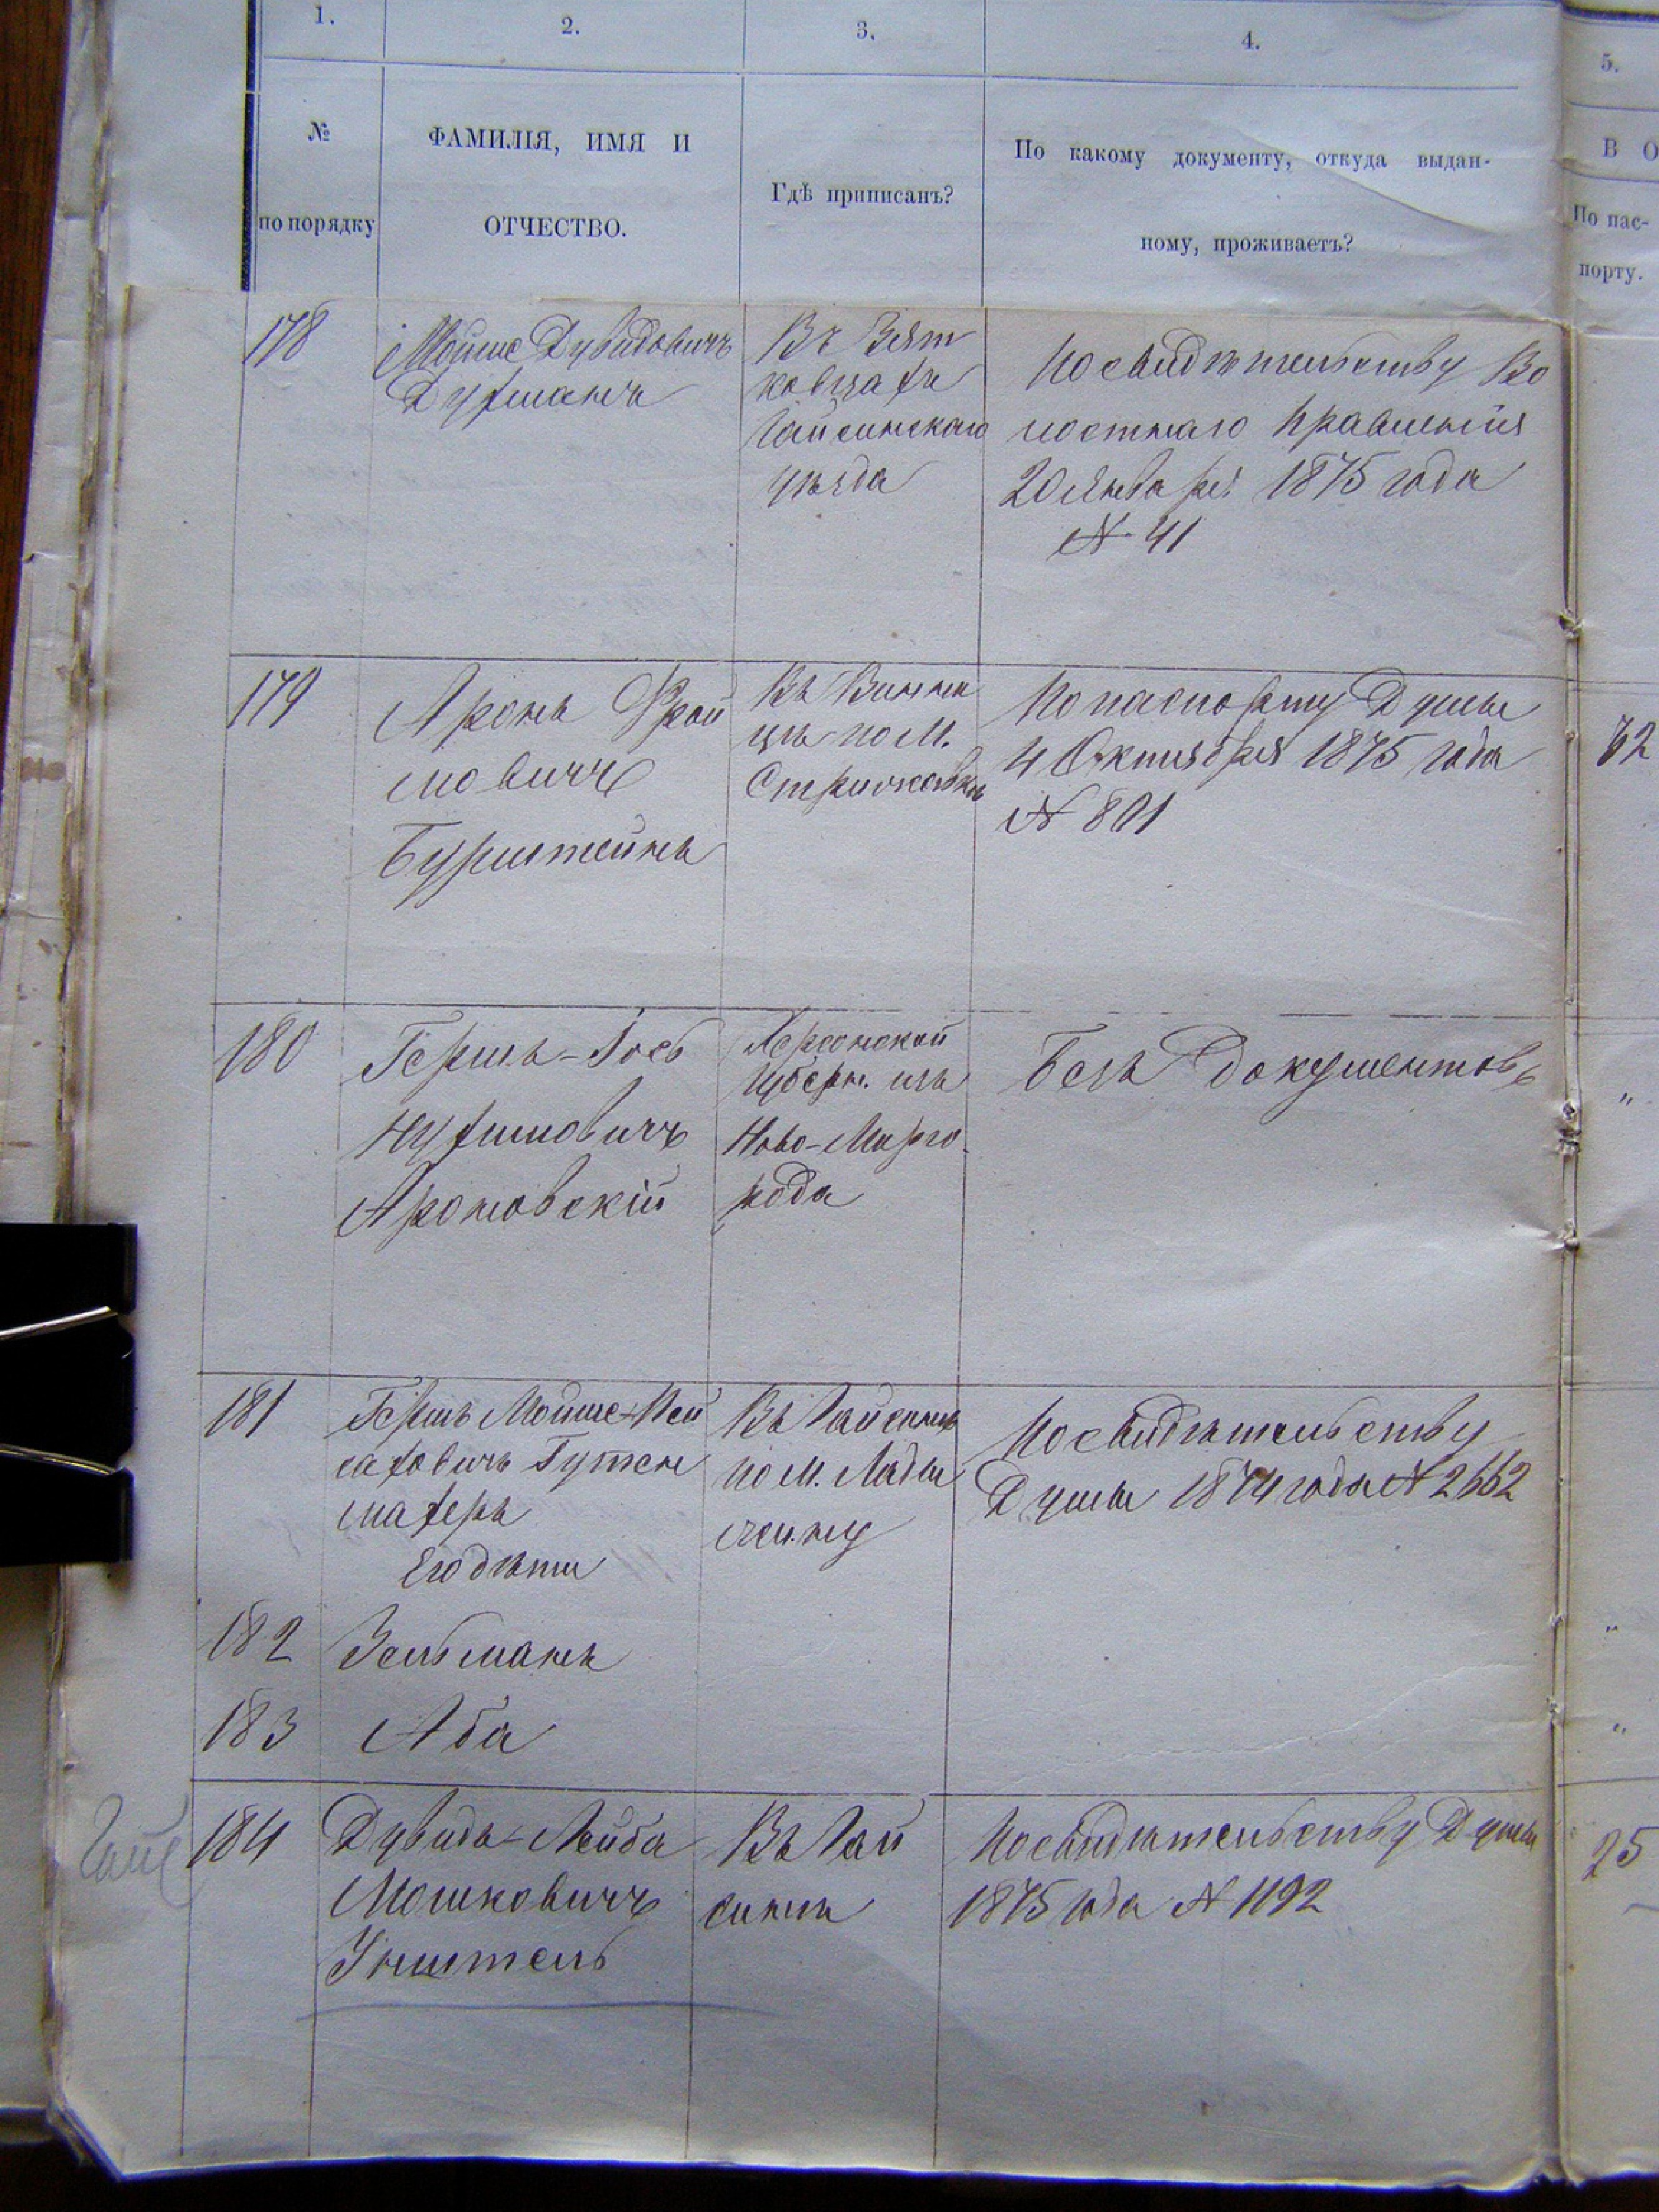 1. 2. 3. 4. 5.
№ по порядку
ФАМИЛІЯ, ИМЯ И
ОТЧЕСТВО.
Гдѣ приписанъ?
По какому документу, откуда выдан-
ному, проживаетъ?
В О
По пас-
порту.
178
Мойше Дувидовичъ
Духманъ
Въ Зят
ковцахъ
Гайсинскаго
уѣзда
По свидѣтельству Во
лостнаго правленія
20 Января 1875 года
№ 41
179
Аронъ Фрой
мовичъ
Бурштейнъ
Въ Винни
цѣ по м.
Стрижавкѣ
По паспорту Думы
4 Октября 1875 года
№ 801
72
180
Гершъ-Іось
Нухимовичъ
Ароновскій
Херсонской
Губерн. изъ
Ново-Мирго
рода
Безъ документовъ
"
181
Гершъ Мойше-Пей
саховичъ Гутен
махеръ
Его дѣти
Въ Гайсинѣ
по м. Лады
жину
По свидѣтельству
Думы 1874 года № 2662
182
Зельманъ
"
183
Аба
"
Гайс
184
Дувидъ-Лейба
Мошковичъ
Учитель
Въ Гай
синѣ
По свидѣтельству Думы
1875 года № 1192
25